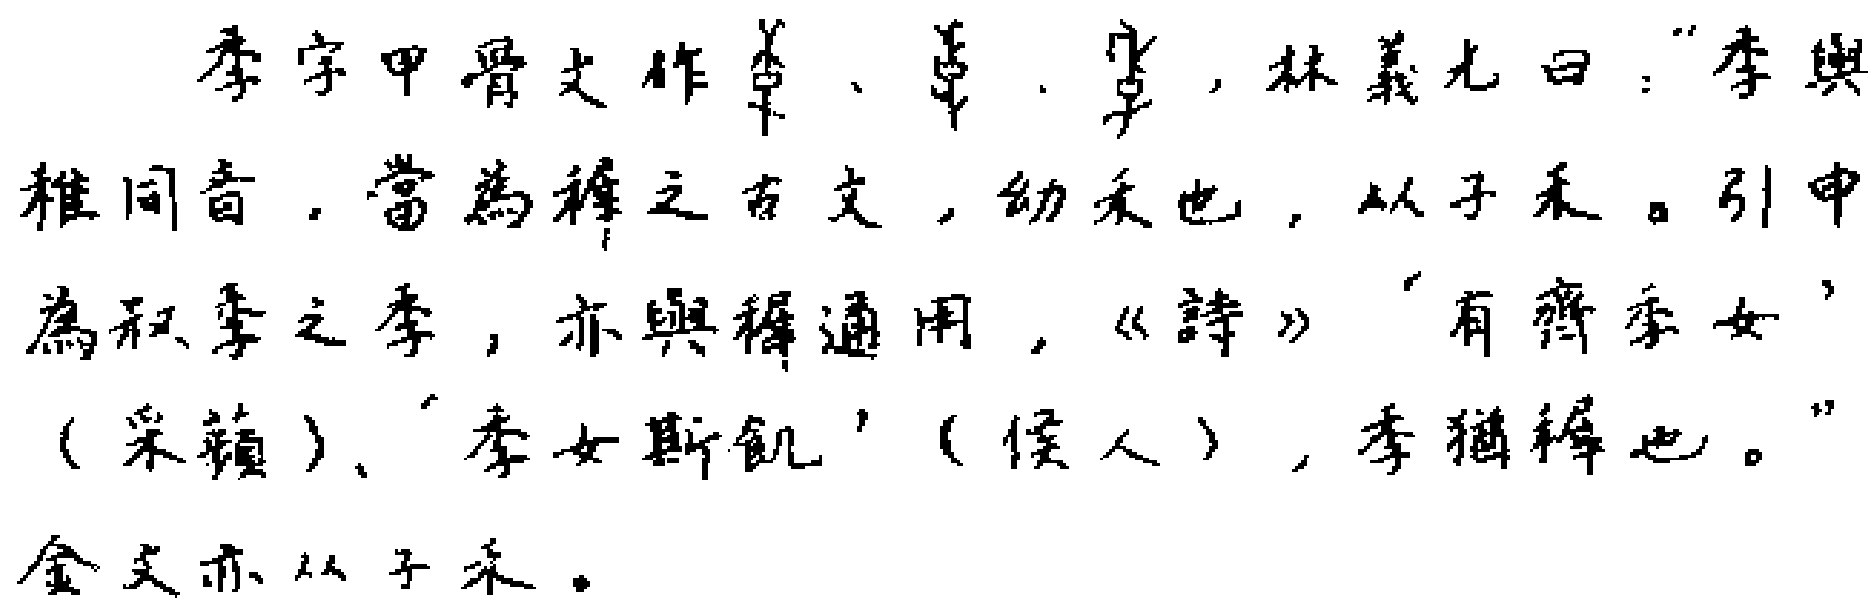 季字甲骨文作、、,林義光曰:“季與
稚同音,當為稺之古文,幼禾也,从子禾。引申
為叔季之季,亦與稺通用,《詩》‘有齊季女’
(采蘋)、‘季女斯飢’(侯人),季猶稺也。”
金文亦从子禾。